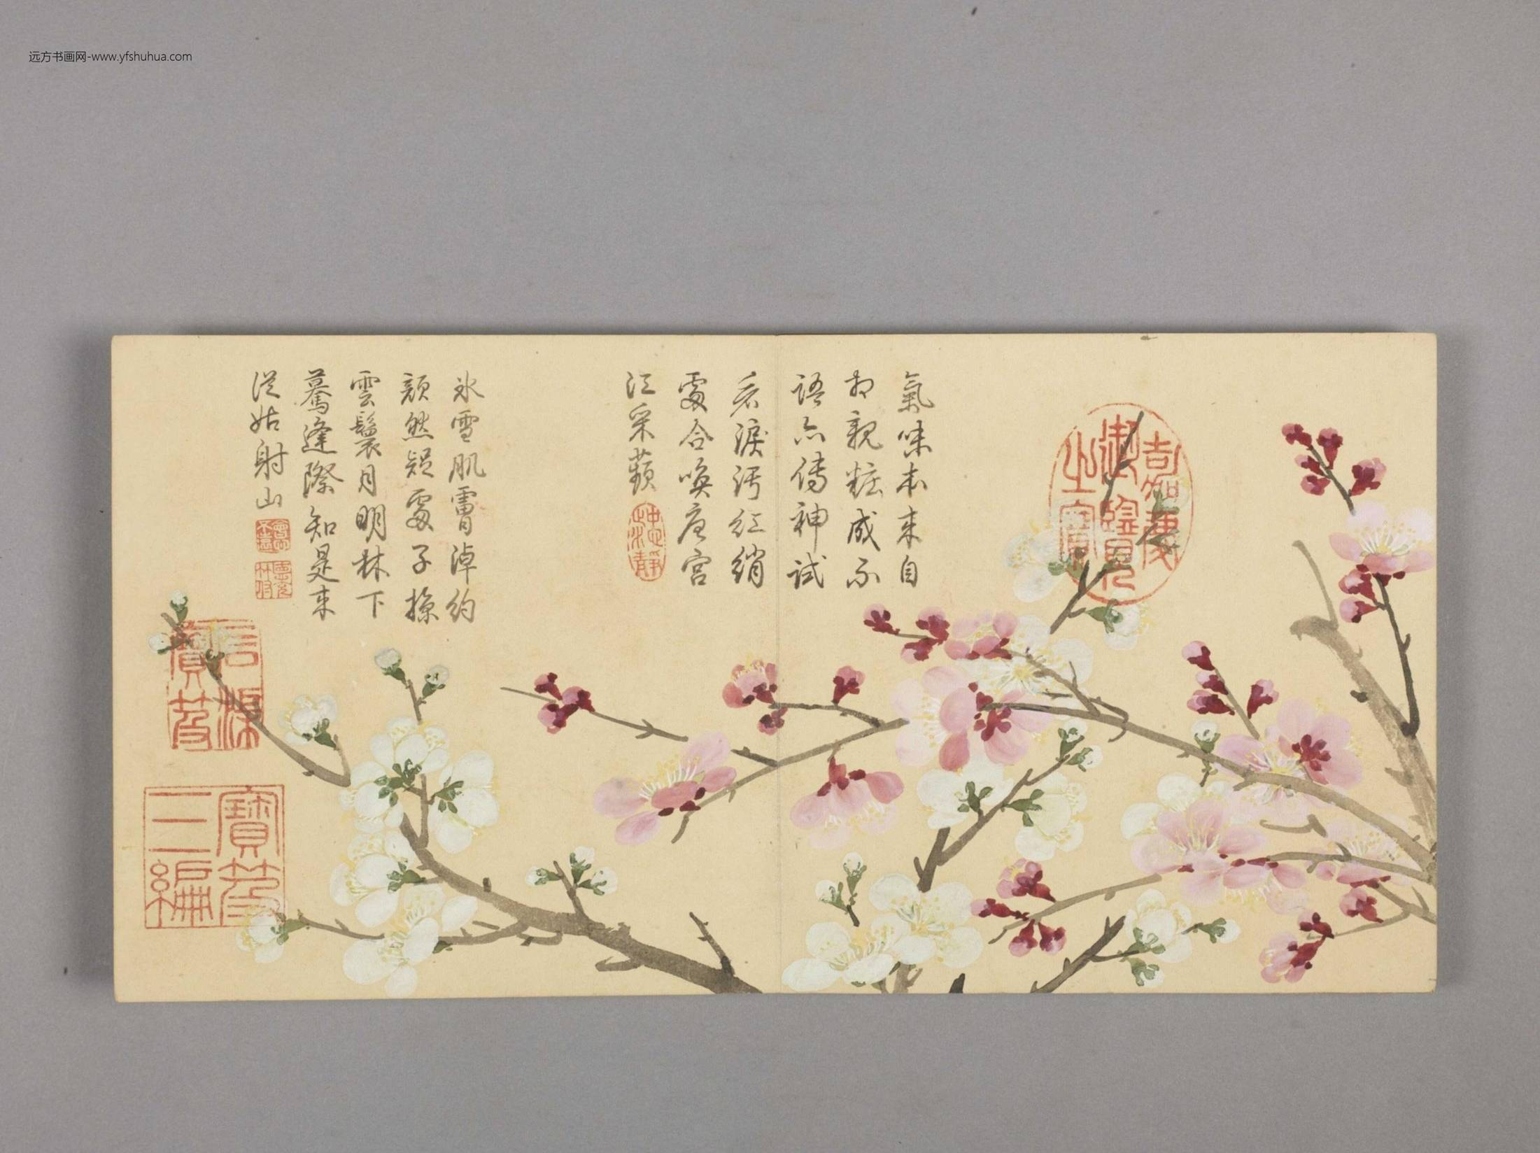 远方书画网-www.yfshuhua.com
氣味本来自
相親粧成不
語亦傳神試
看淚污紅綃
處合喚唐宮
江采蘋
氷雪肌膚淖約
顔然疑處子掠
雲鬟月明林下
驀逢際知是来
從姑射山
嘉慶
御覽
之寶
石渠
寶笈
寶笈
三編